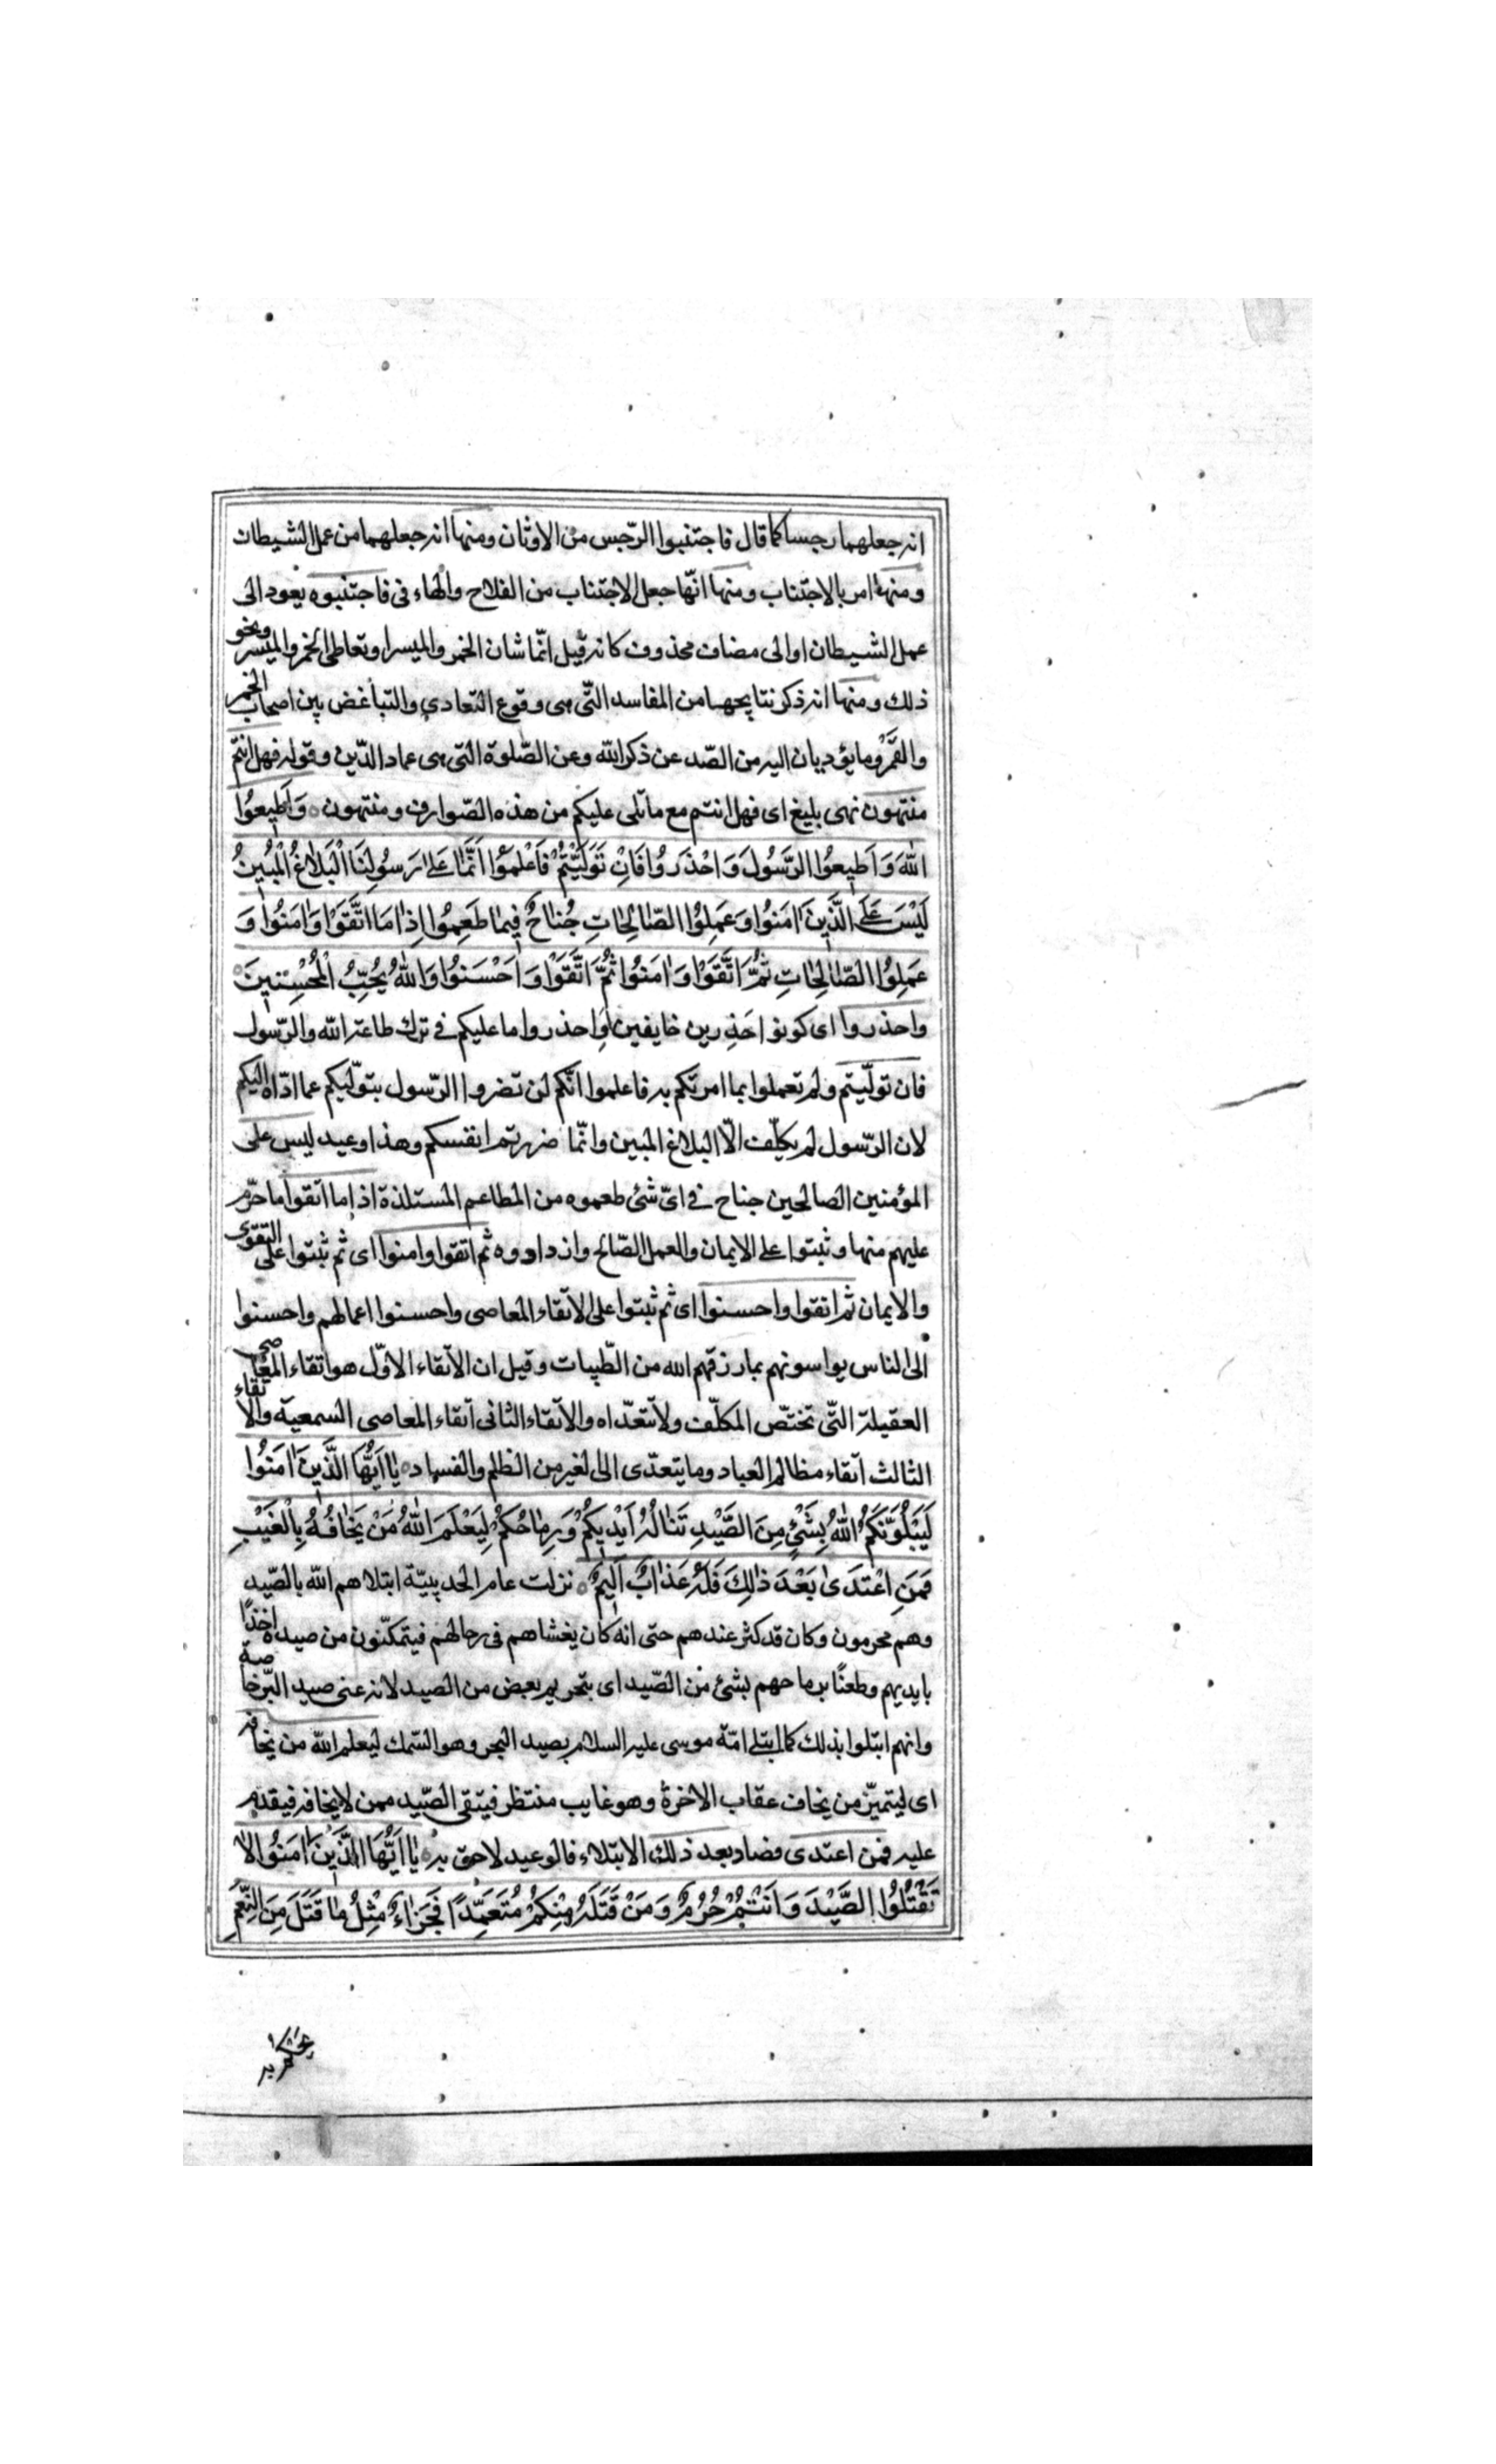 انه جعلهما رجسا كما قال فاجتنبوا الرّجس من الاوثان ومنها انه جعلهما من عمل الشيطان
ومنها امر بالاجتناب ومنها انّها جعل الاجتناب من الفلاح والهاء فى فاجتنبوه يعود الى
عمل الشيطان او الى مضاف محذوف كانه قيل انّما شان الخمر والميسر او تعاطى الخمر والميسر ونحو
ذلك ومنها انه ذكر نتايجهما من المفاسد التّى هى وقوع التعادى والتباغض بين اصحاب الخمر
والقمر وما يؤديان اليه من الصّد عن ذكر الله وعن الصّلوة التى هى عماد الدّين وقوله فهل انتم
منتهون نهى بليغ اى فهل انتم مع ما تلى عليكم من هذه الصّوارف ومنتهون وَاَطِيعُوا
اللهَ وَاَطِيعُوا الرَّسُولَ وَاحْذَرُوا فَاِنْ تَوَلَّيْتُمْ فَاعْلَمُوا اَنَّمَا عَلىٰ رَسُولِنَا الْبَلَاغُ الْمُبِينُ
لَيْسَ عَلَى الَّذِينَ اٰمَنُوا وَعَمِلُوا الصَّالِحَاتِ جُنَاحٌ فِيمَا طَعِمُوا اِذَا مَا اتَّقَوْا وَاٰمَنُوا وَ
عَمِلُوا الصَّالِحَاتِ ثُمَّ اتَّقَوْا وَاٰمَنُوا ثُمَّ اتَّقَوْا وَاَحْسَنُوا وَاللهُ يُحِبُّ الْمُحْسِنِينَ
واحذروا اى كونوا حَذِرين خايفين او احذروا ما عليكم فى ترك طاعة الله والرّسول
فان تولّيتم ولم تعملوا بما امرتكم به فاعلموا انّكم لن تضروا الرّسول بتولّيكم عما ادّاه اليكم
لان الرّسول لم يكلّف الّا البلاغ المبين وانّما ضررتم انفسكم وهذا وعيد ليس على
المؤمنين الصالحين جناح فى اىّ شئ طعموه من المطاعم المستلذة اذا ما اتقوا ما حرّم
عليهم منها وثبتوا على الايمان والعمل الصّالح وازدادوه ثم اتقوا وامنوا اى ثم ثبتوا على التقوى
والايمان ثم اتقوا واحسنوا اى ثم ثبتوا على الاتّقاء المعاصى واحسنوا اعمالهم واحسنوا
الى الناس يواسونهم بما رزقهم الله من الطّيبات وقيل ان الاتقاء الاوّل هو اتقاء المعاصى
العقيلة التّى تختصّ المكلّف ولا تتعدّاه والاتقاء الثانى اتقاء المعاصى السمعيّة والاتقاء
الثالث اتقاء مظالم العباد وما يتعدّى الى الغير من الظلم والفساد يَا اَيُّهَا الَّذِينَ اٰمَنُوا
لَيَبْلُوَنَّكُمُ اللهُ بِشَئٍْ مِنَ الصَّيْدِ تَنَالُهُ اَيْدِيكُمْ وَرِمَاحُكُمْ لِيَعْلَمَ اللهُ مَنْ يَخَافُهُ بِالْغَيْبِ
فَمَنِ اعْتَدىٰ بَعْدَ ذٰلِكَ فَلَهُ عَذَابٌ اَلِيمٌ نزلت عام الحديبيّة ابتلاهم الله بالصّيد
وهم محرمون وكان قد كثر عندهم حتى انه كان يغشاهم فى رحالهم فيتمكّنون من صيده اخذًا
بايديهم وطعنًا برماحهم بشئ من الصّيد اى بتحريم بعض من الصيد لانه عنى صيد البّر خاصة
وانهم ابتلوا بذلك كما ابتلى امّة موسى عليه السلام بصيد البحر وهو السّمك ليعلم الله من يخافه
اى ليتميّز من يخاف عقاب الاخرة وهو غايب منتظر فيتقى الصّيد ممن لا يخافه فيقدم
عليه فمن اعتدى فصاد بعد ذلك الابتلاء فالوعيد لاحق به يَا اَيُّهَا الَّذِينَ اٰمَنُوا لَا
تَقْتُلُوا الصَّيْدَ وَاَنْتُمْ حُرُمٌ وَمَنْ قَتَلَهُ مِنْكُمْ مُتَعَمِّدًا فَجَزَاءٌ مِثْلُ مَا قَتَلَ مِنَ النَّعَمِ
يحكم به